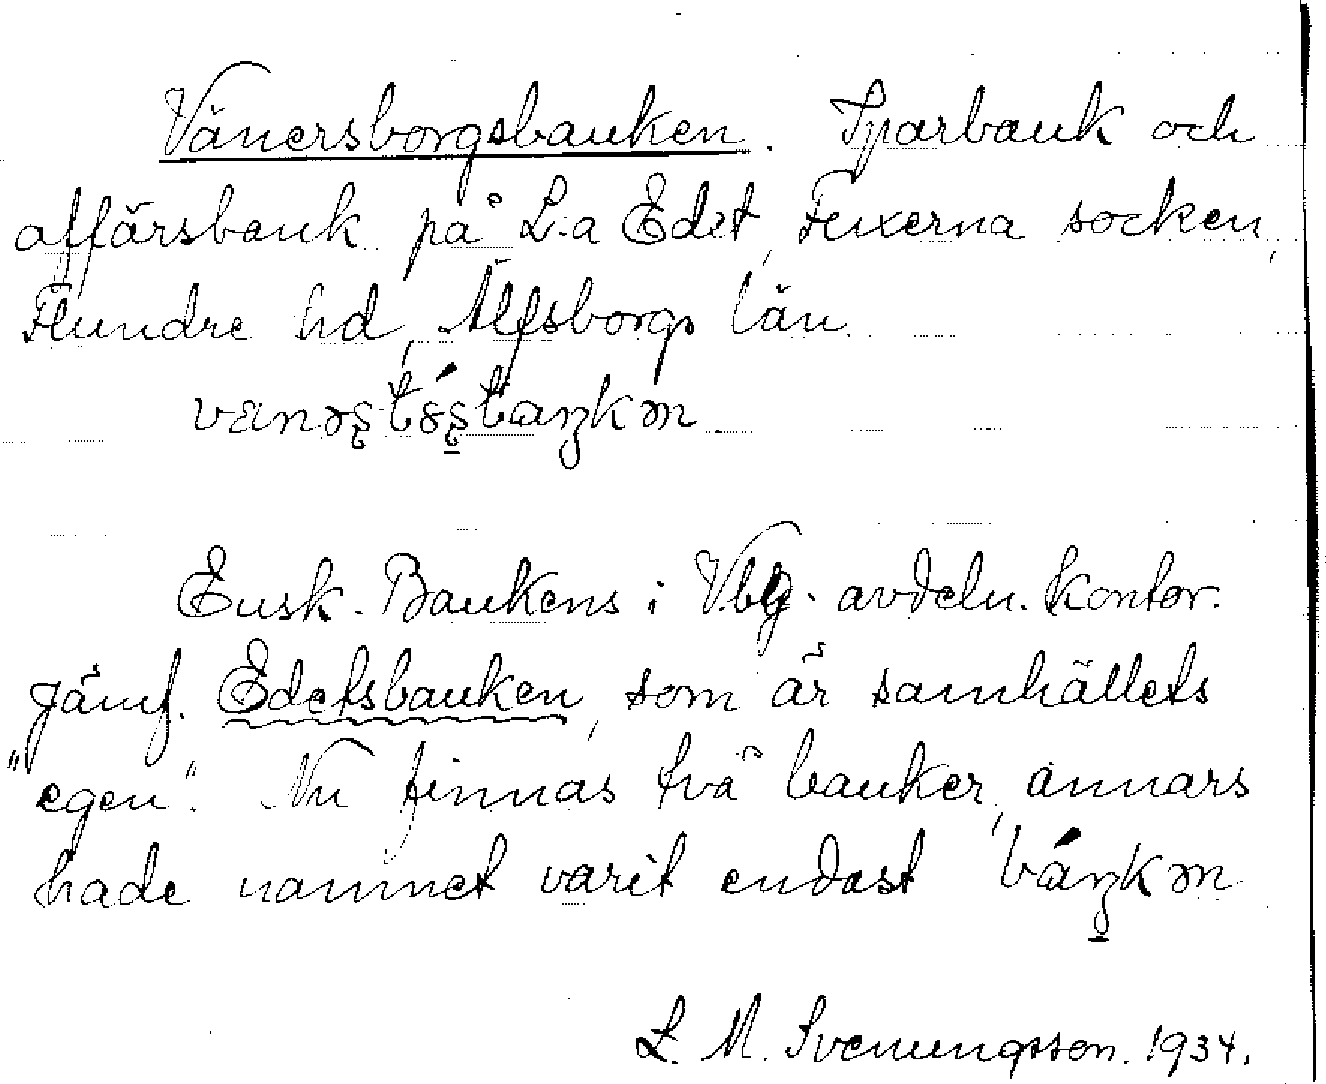 Vänersborgsbanken. Sparbank och
affärsbank på L:a Edet, Fuxerna socken,
Flundre hd, Älfsborgs län.
Ensk. Bankens i Vbg. avdeln. kontor.
Jämf. Edetsbanken, som är samhällets
"egen". Nu finnas två banker, annars
hade namnet varit endast
L. M. Svenungsson. 1934.